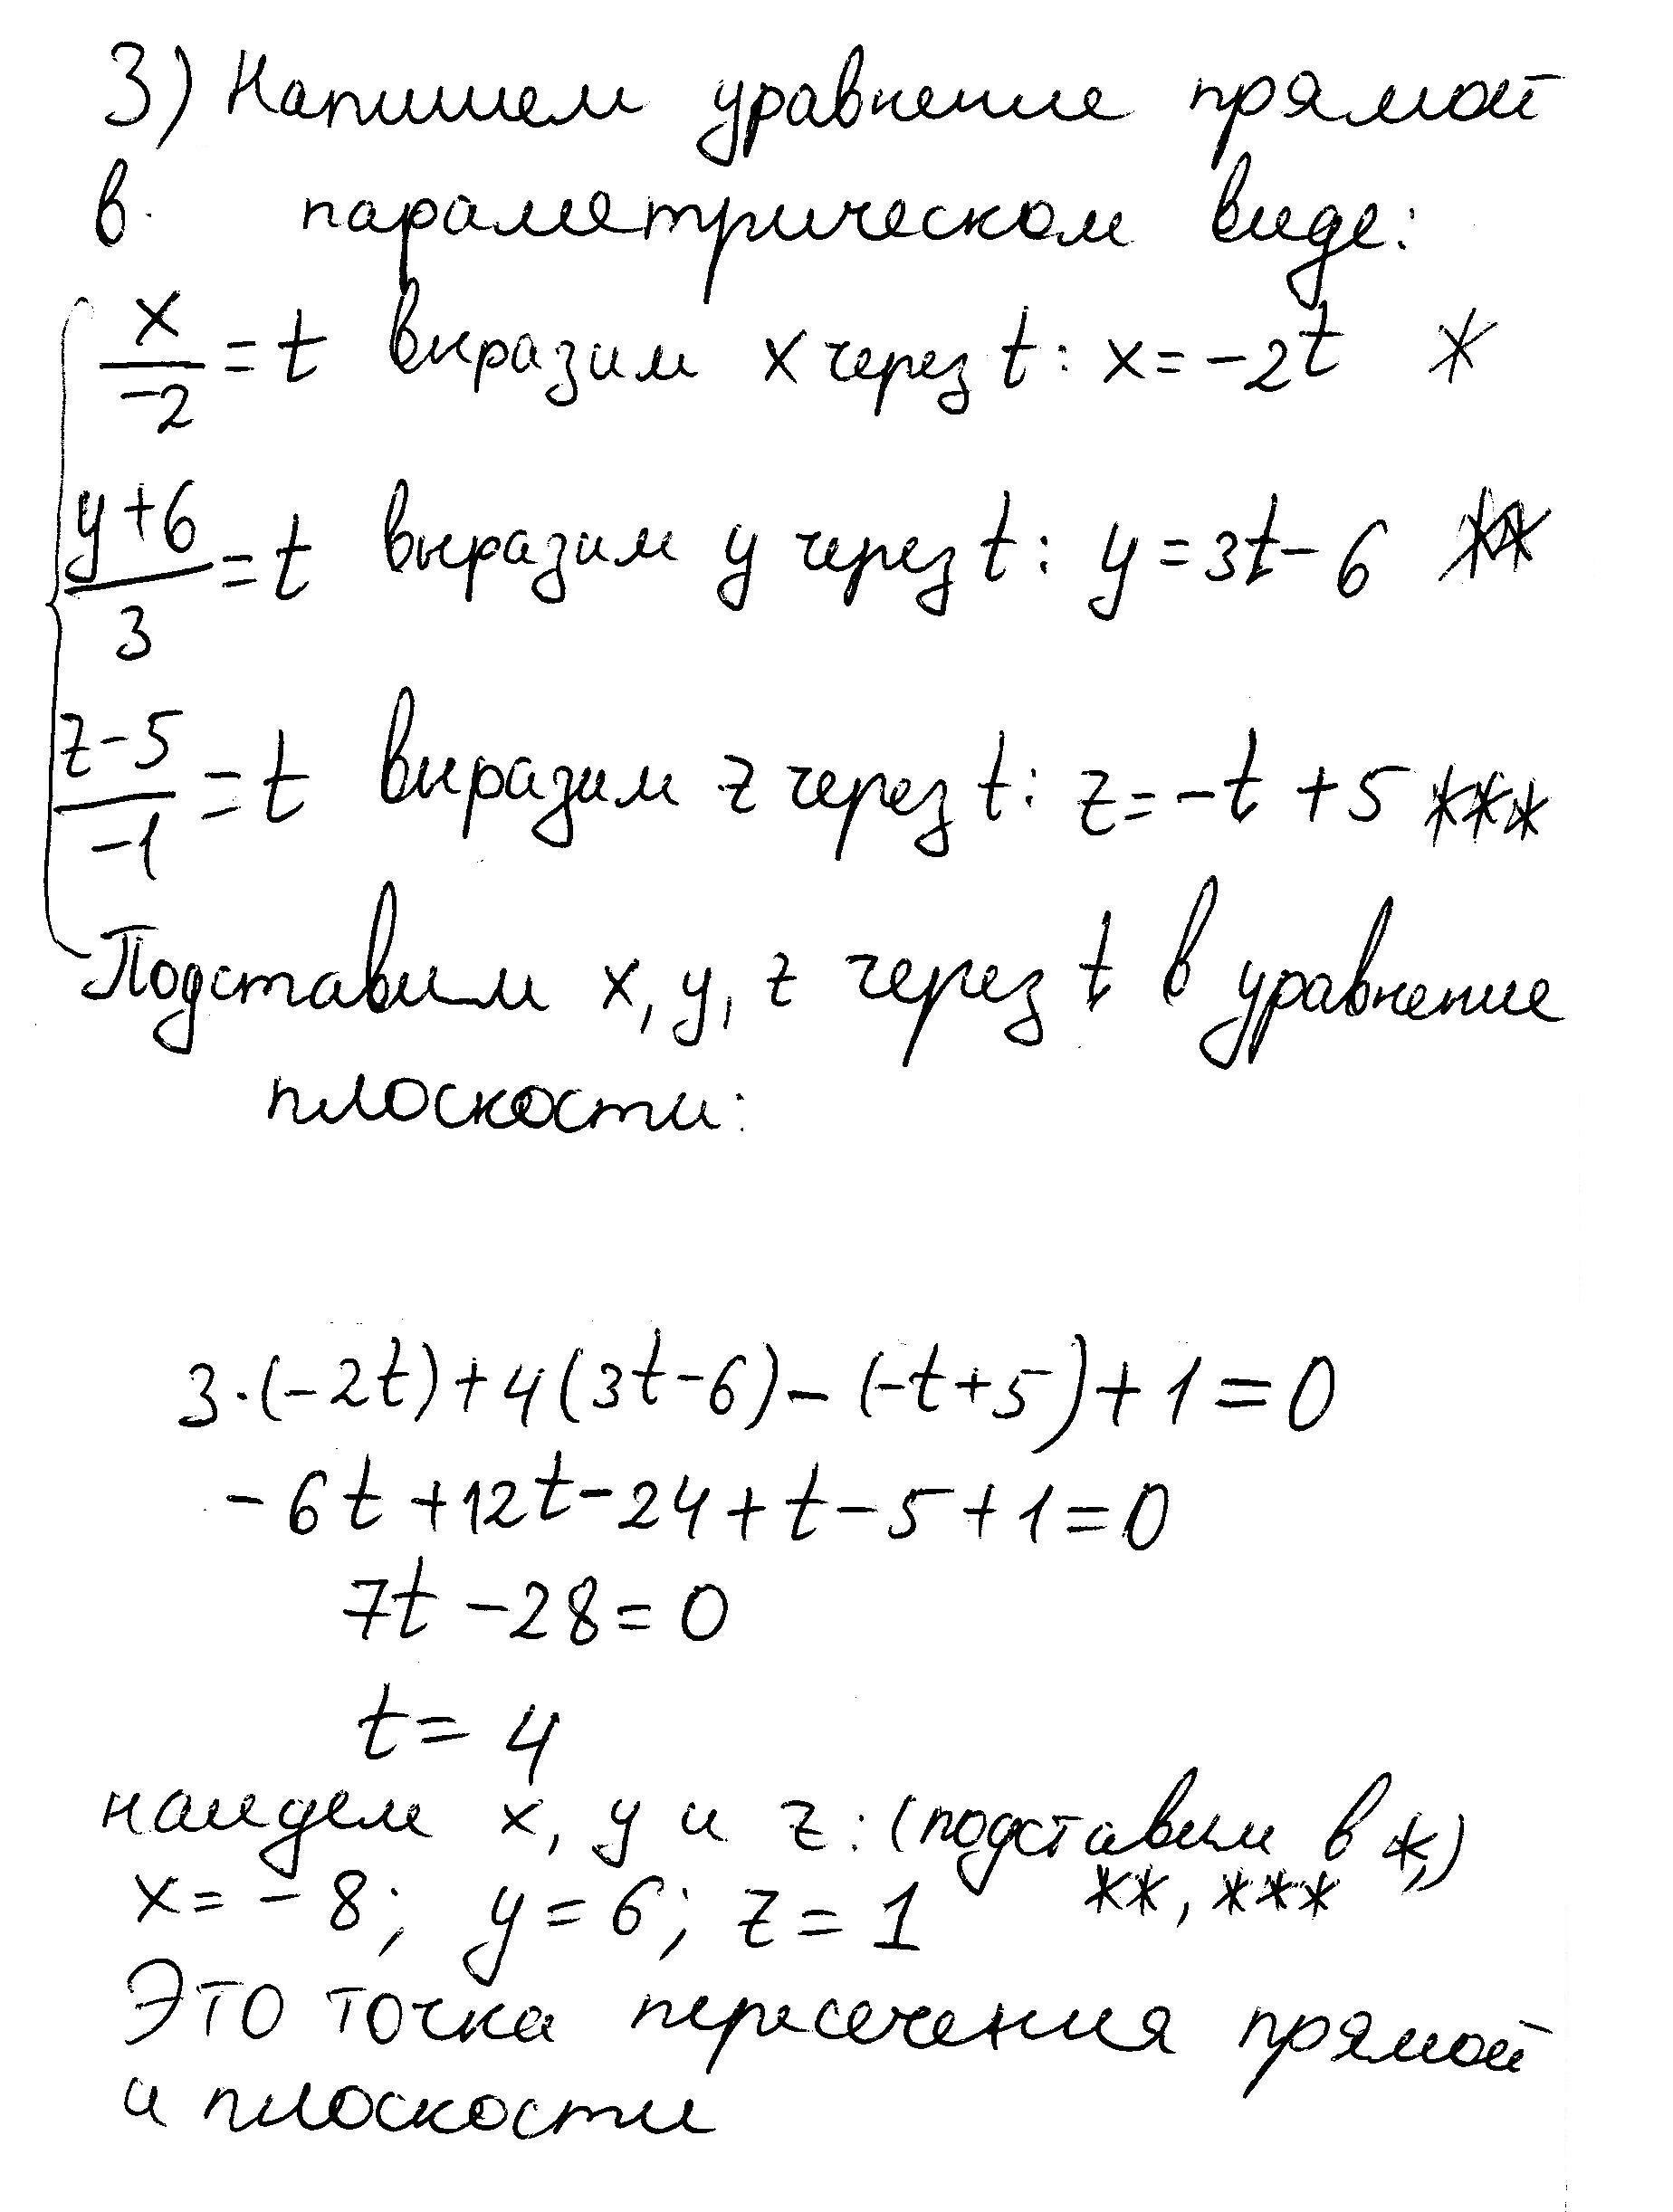 3) Напишем уравнение прямой
в параметрическом виде:
x/-2 = t выразим x через t: x = -2t *
y+6/3 = t выразим y через t: y = 3t - 6 **
z-5/-1 = t выразим z через t: z = -t + 5 ***
Подставим x, y, z через t в уравнение
плоскости:
3·(-2t)+4(3t-6)-(-t+5)+1=0
-6t+12t-24+t-5+1=0
7t-28=0
t=4
найдем x, y и z: (подставим в *,)
x=-8; y=6; z=1 **, ***
Это точка пересечения прямой
и плоскости